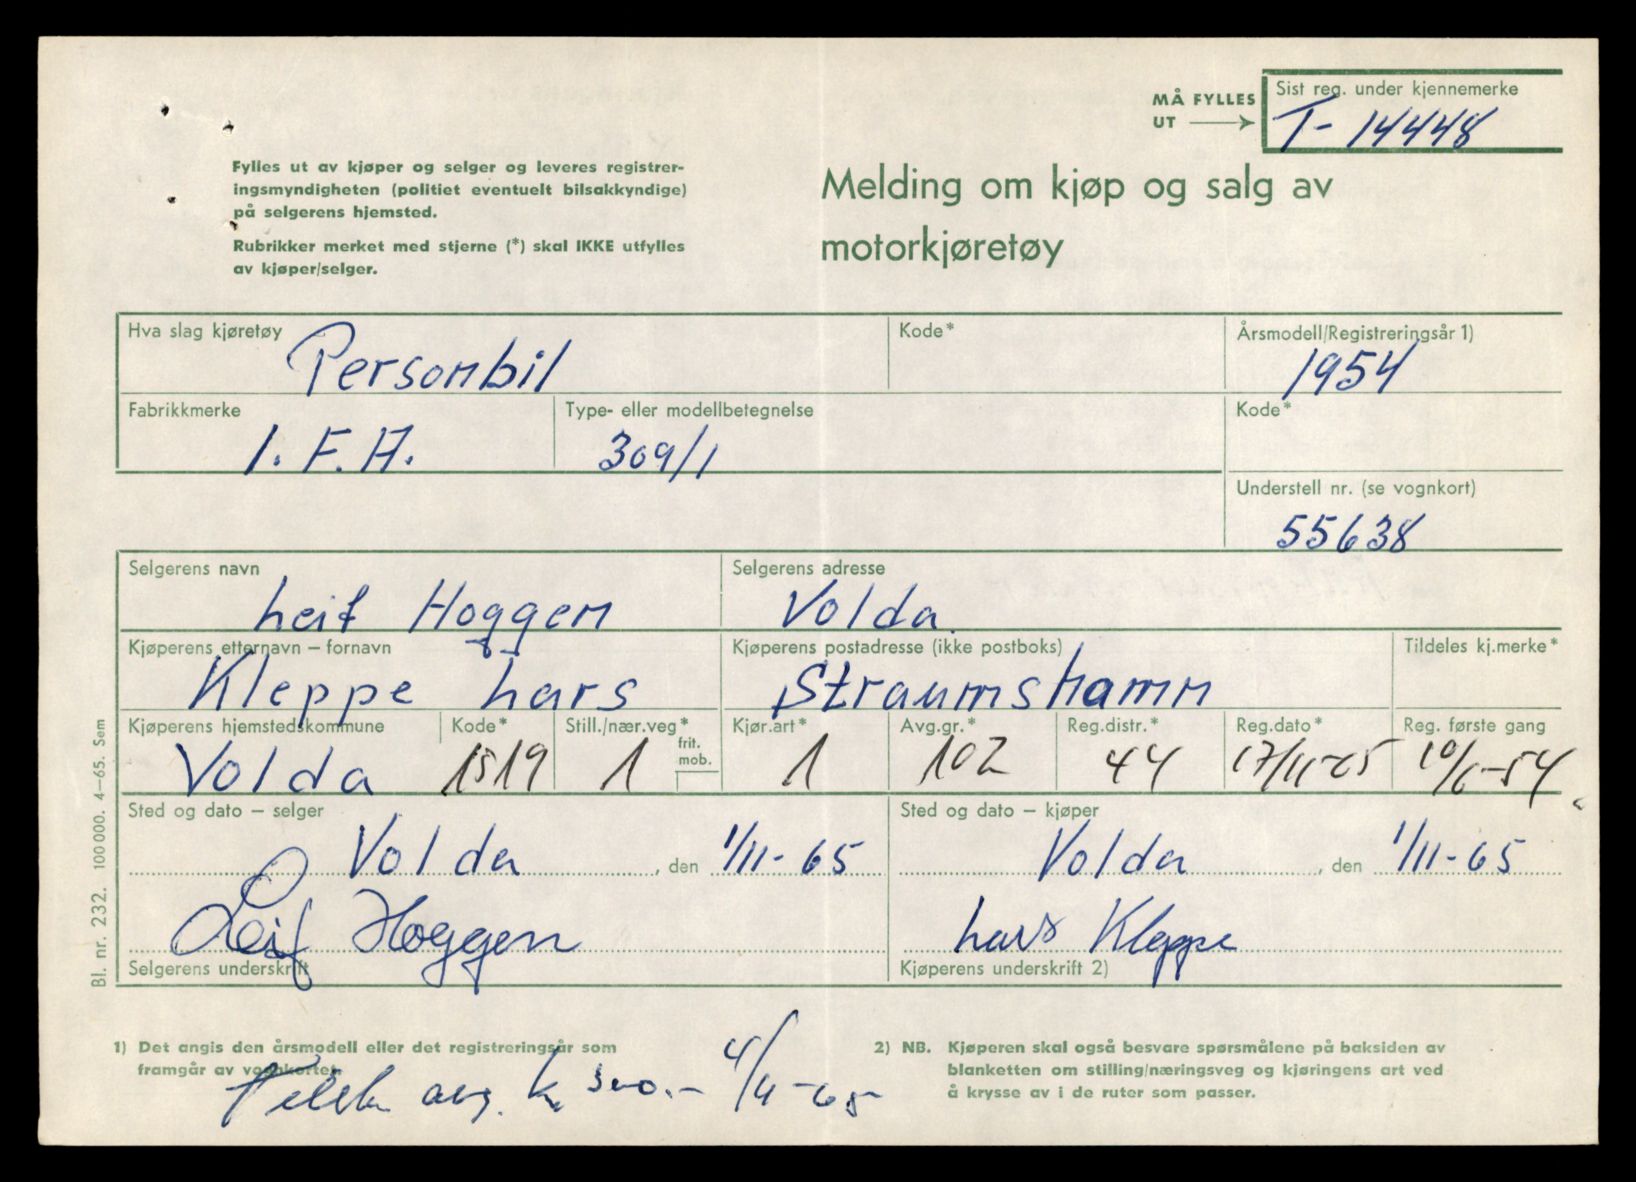 MÅ FYLLES
UT
Sist reg. under kjennemerke
T- 14448
Fylles ut av kjøper og selger og leveres registrer-
ingsmyndigheten (politiet eventuelt bilsakkyndige)
på selgerens hjemsted.
Rubrikker merket med stjerne (*) skal IKKE utfylles
av kjøper/selger.
Melding om kjøp og salg av
motorkjøretøy
Hva slag kjøretøy
Personbil
Kode*
Årsmodell/Registreringsår 1)
1954
Fabrikkmerke
I. F. A.
Type- eller modellbetegnelse
309/1
Kode*
Understell nr. (se vognkort)
55638
Selgerens navn
Leif Hoggen
Selgerens adresse
Volda
Kjøperens etternavn – fornavn
Kleppe Lars
Kjøperens postadresse (ikke postboks)
Straumshamn
Tildeles kj.merke*
Kjøperens hjemstedskommune
Volda
Kode*
1519
Still./nær.veg*
1
frit.
mob.
Kjør.art*
1
Avg.gr.*
102
Reg.distr.*
44
Reg.dato*
17/11-65
Reg. første gang
10/6-54
Sted og dato – selger
Volda, den 1/11-65
Leif Hoggen
Selgerens underskrift
Sted og dato – kjøper
Volda, den 1/11-65
Lars Kleppe
Kjøperens underskrift 2)
Bl. nr. 232. 100 000. 4–65. Sem
1) Det angis den årsmodell eller det registreringsår som
framgår av vognkortet.
avg. kr 4/11-65
2) NB. Kjøperen skal også besvare spørsmålene på baksiden av
blanketten om stilling/næringsveg og kjøringens art ved
å krysse av i de ruter som passer.